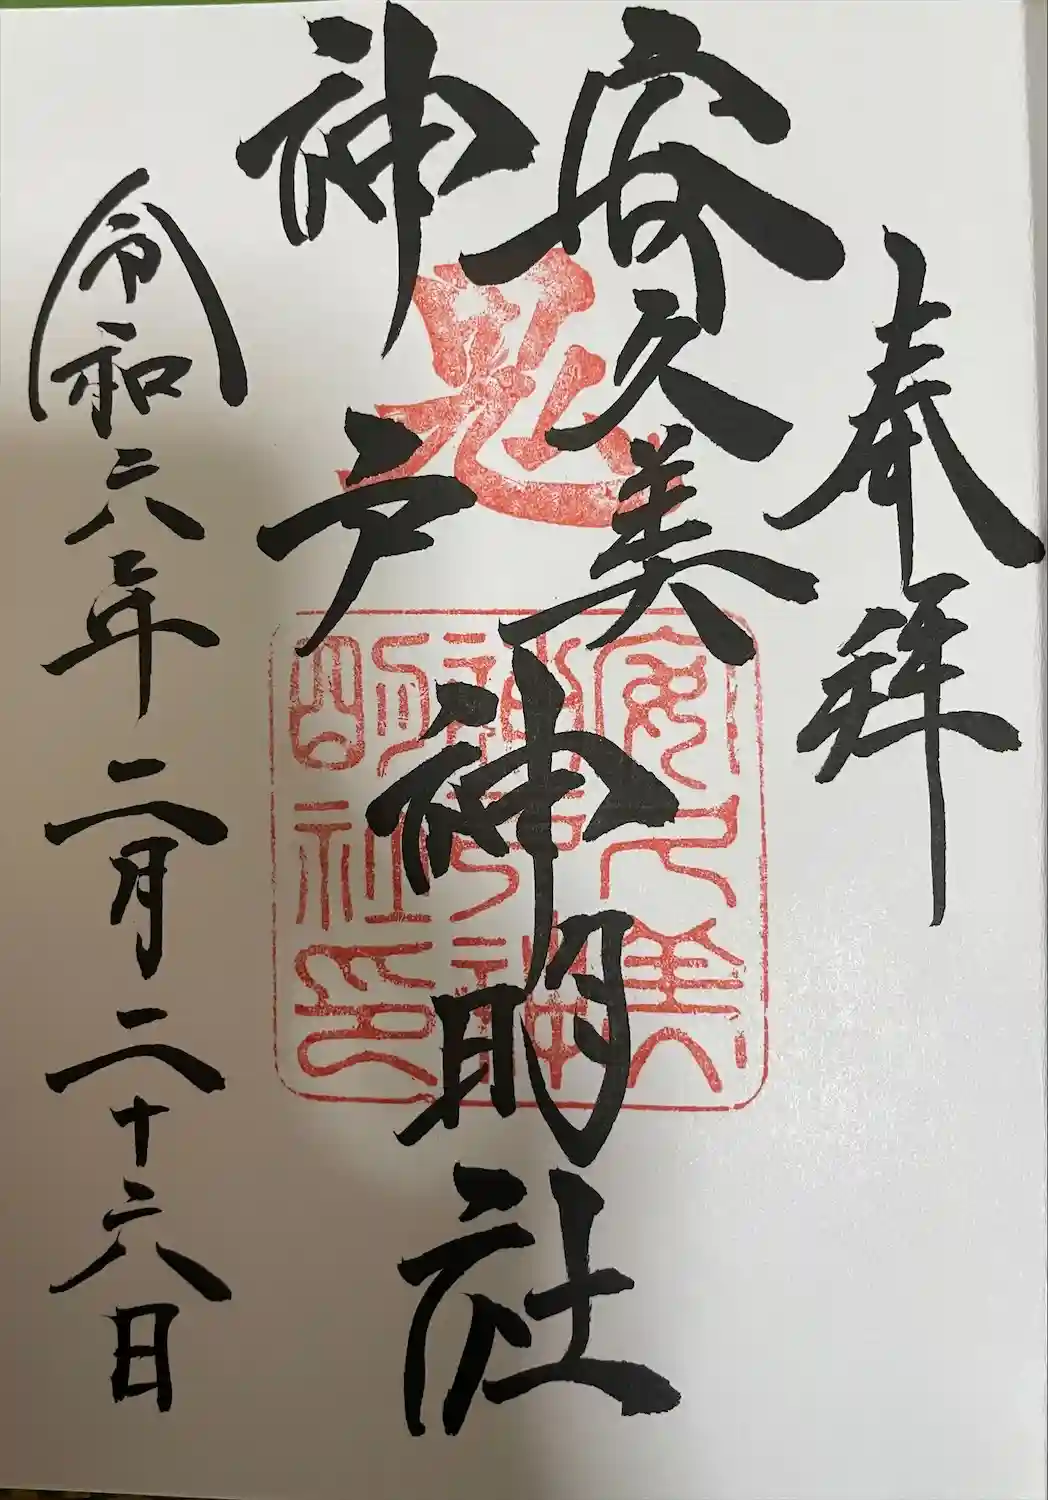 奉拝
安久美
神戸
神明社
鬼
安久美
神戸神
明社印
令和六年二月二十六日